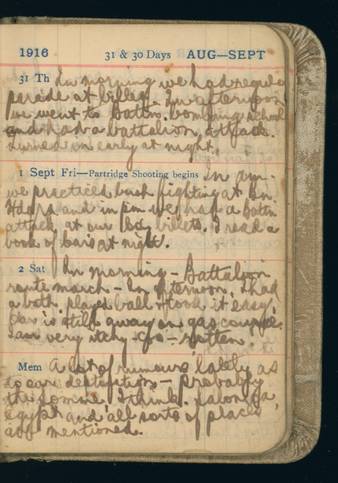 1916 31 & 30 Days AUG—SEPT
31 Th In morning we had regular
parade at billets. In afternoon
we went to Battn. bombing school
and had a battalion attack.
Turned in early at night.
1 Sept Fri—Partridge Shooting begins In a.m.
we practiced bush fighting at Bn.
Hdqrs. and in p.m. we had a Battn
attack at our billets. I read a
book of at night.
2 Sat In morning – Battalion
route march – In afternoon, I had
a bath, played ball & took it easy.
is still away on gas course.
I am very itchy –
Mem A lot of rumours lately as
to our destination – probably
the Somme I think. Salonica,
Egypt and all sorts of places
are mentioned.